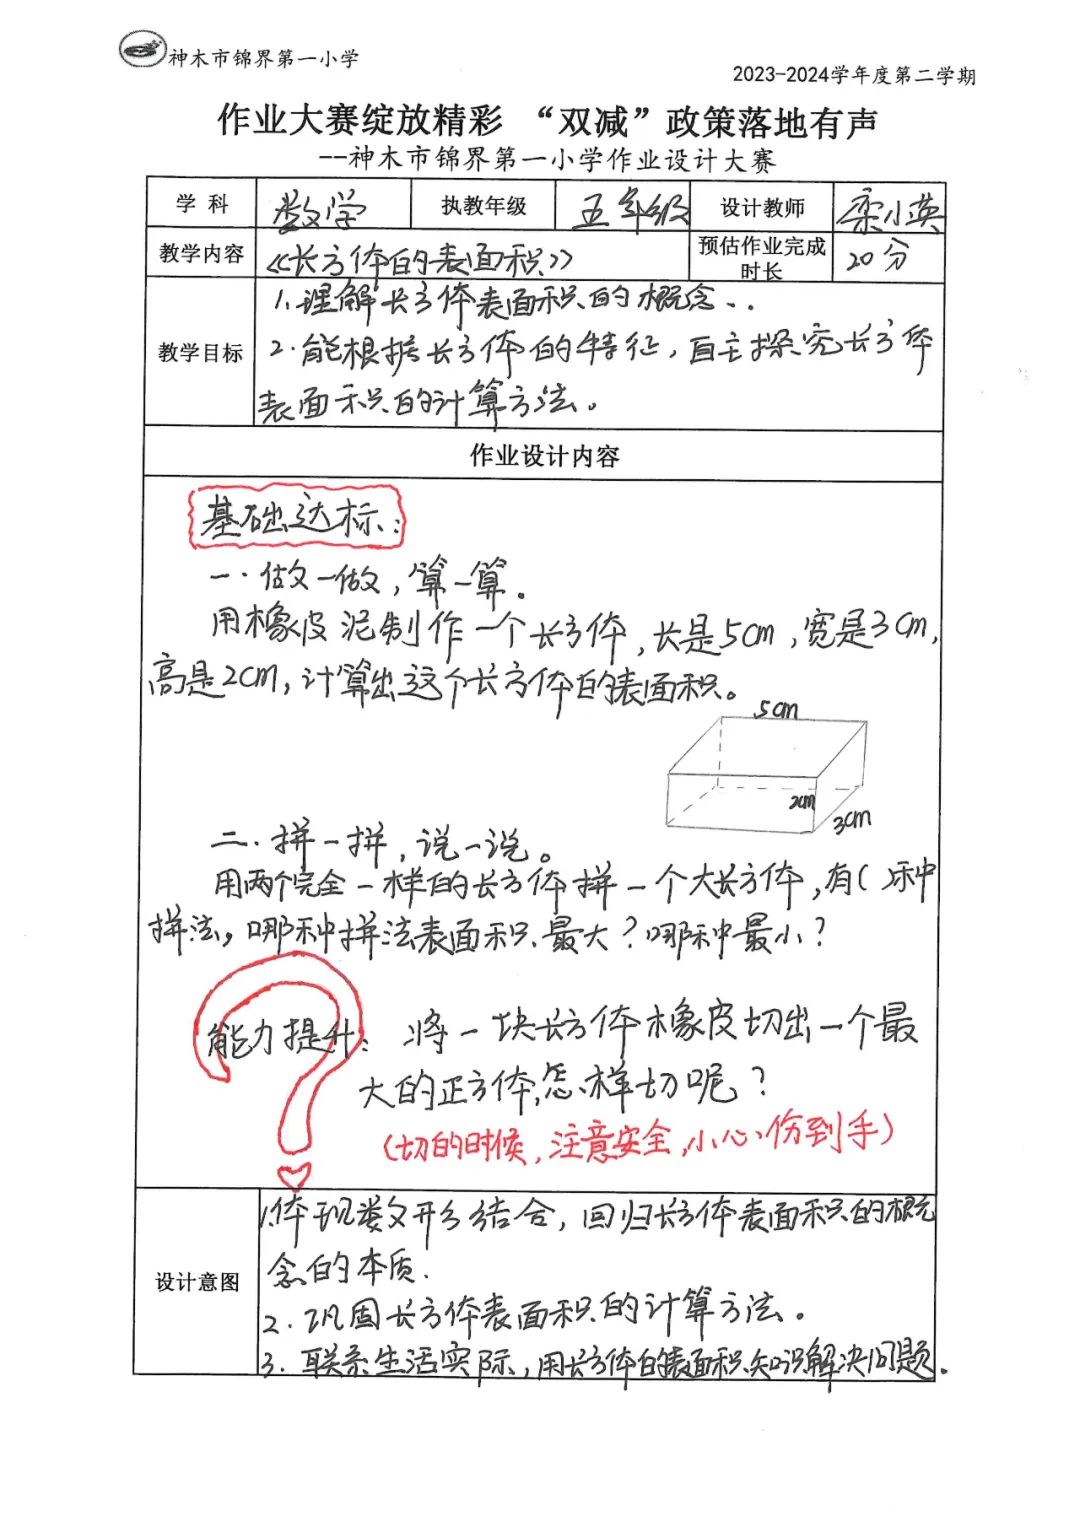 神木市锦界第一小学
2023-2024学年度第二学期
作业大赛绽放精彩 “双减”政策落地有声
--神木市锦界第一小学作业设计大赛
学 科 数学 执教年级 五年级 设计教师 栾小英
教学内容 《长方体的表面积》 预估作业完成时长 20分
教学目标
1.理解长方体表面积的概念、.
2.能根据长方体的特征,自主探究长方体
表面积的计算方法。
作业设计内容
基础达标:
一.做一做,算一算。
用橡皮泥制作一个长方体,长是5cm,宽是3cm,
高是2cm,计算出这个长方体的表面积。
5cm
2cm
3cm
二.拼一拼,说一说。
用两个完全一样的长方体拼一个大长方体,有( )种
拼法。哪种拼法表面积最大?哪种最小?
能力提升: 将一块长方体橡皮切出一个最
大的正方体,怎样切呢?
(切的时候,注意安全,小心份到手)
设计意图
1.体现数形结合,回归长方体表面积的概
念的本质.
2.巩固长方体表面积的计算方法。
3.联系生活实际,用长方体的表面积知识解决问题.